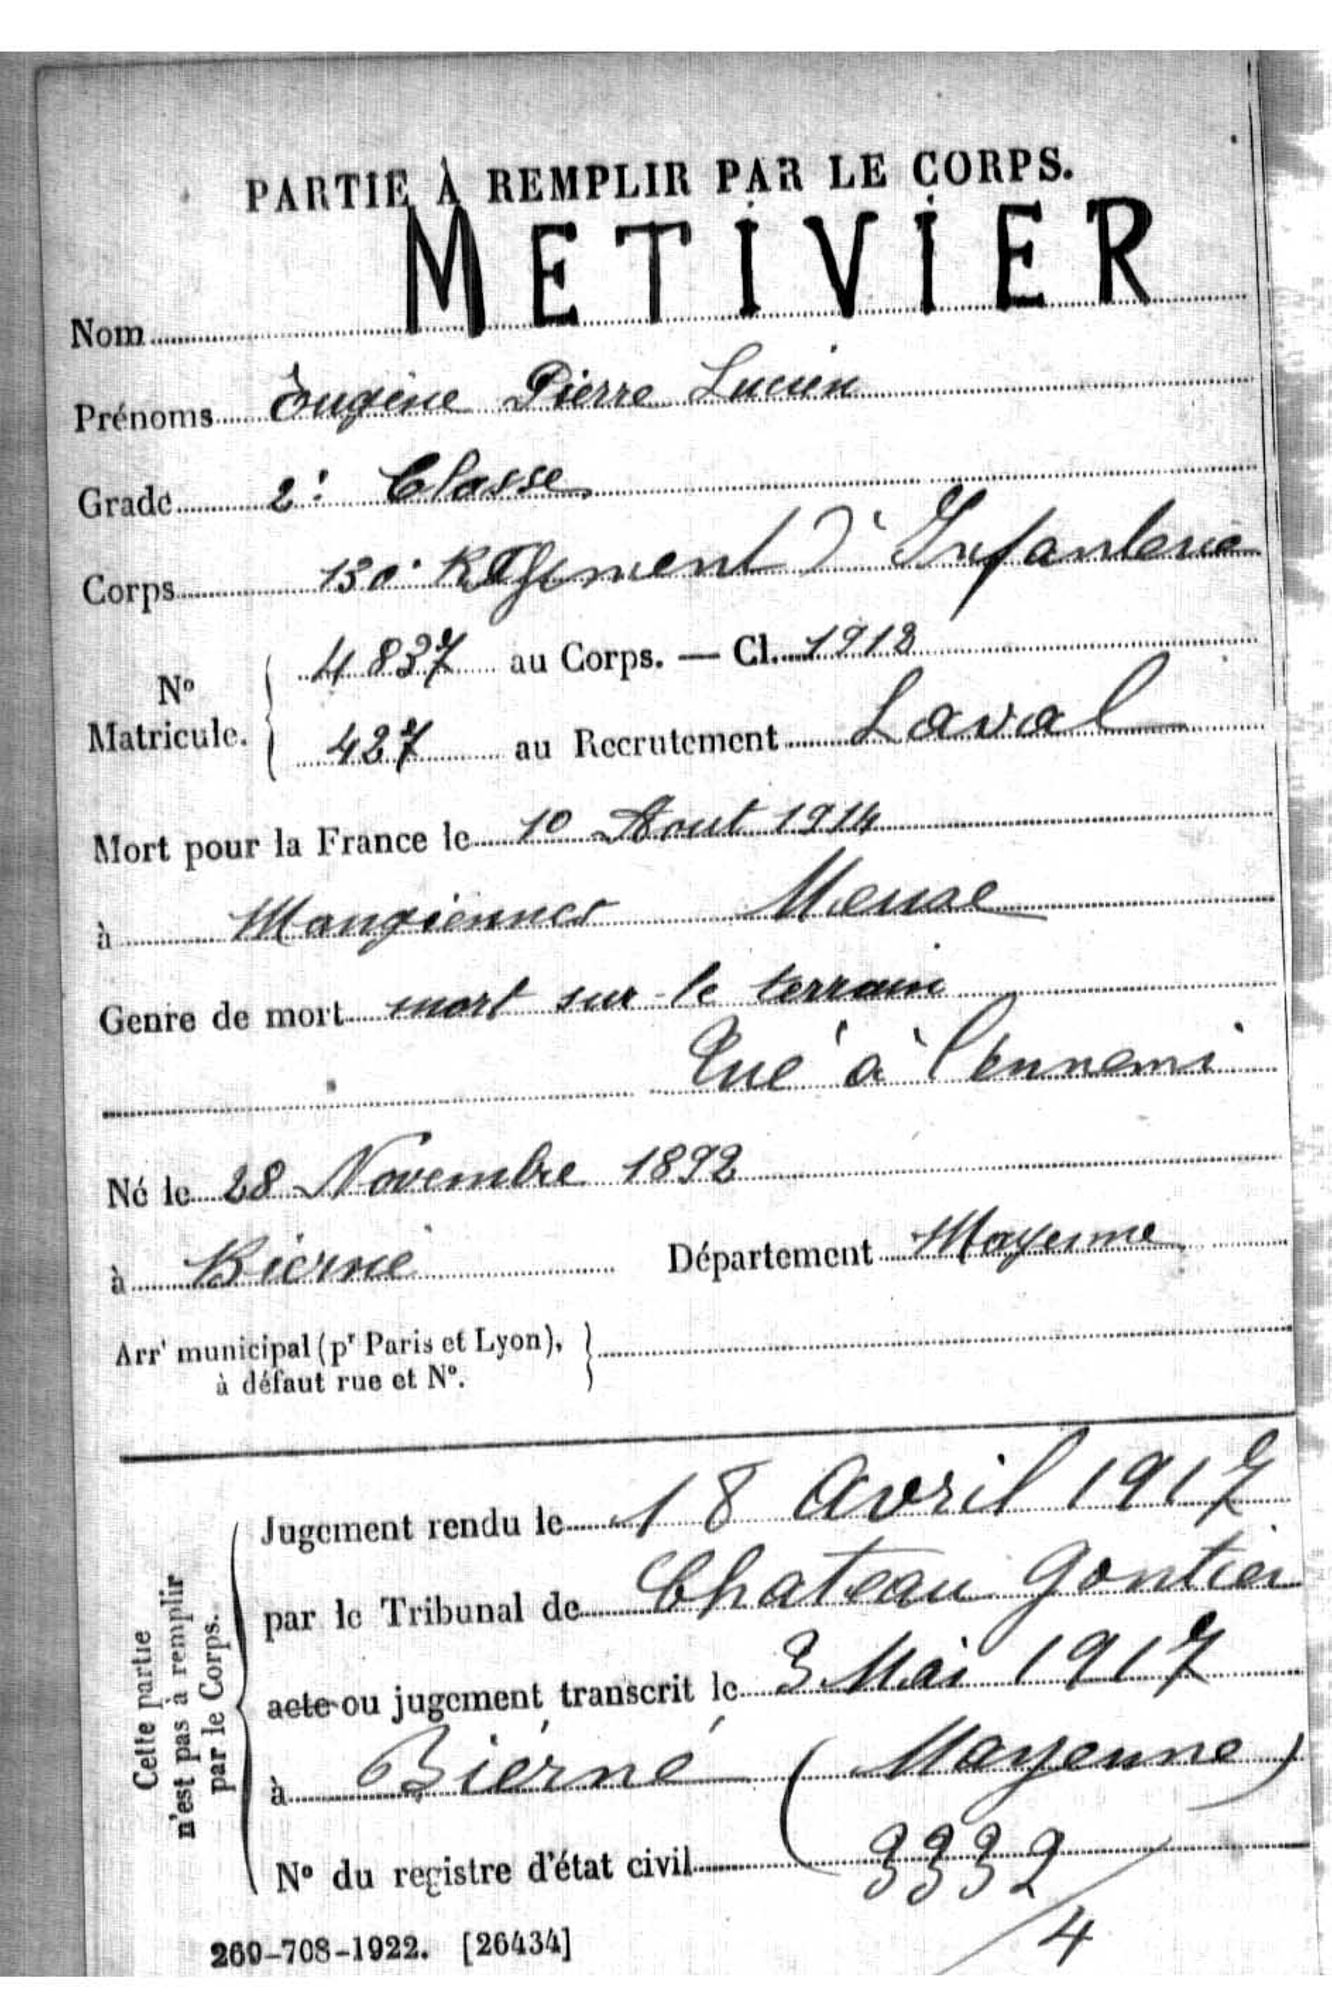 PARTIE À REMPLIR PAR LE CORPS.
Nom METIVIER
Prénoms Eugène Pierre Lucien
Grade 2e Classe
Corps 130e Régiment d'Infanterie
No Matricule. { 4837 au Corps. — Cl. 1912
427 au Recrutement Laval
Mort pour la France le 10 Aout 1914
à Mangiennes Meuse
Genre de mort mort sur le terrain
Tué à l'ennemi
Né le 28 Novembre 1892
à Bierné Département Mayenne
Arrt municipal (pr Paris et Lyon), }
à défaut rue et No.
Cette partie
n'est pas à remplir
par le Corps.
Jugement rendu le 18 Avril 1917
par le Tribunal de Chateau Gontier
acte ou jugement transcrit le 3 Mai 1917
à Bierné (Mayenne)
No du registre d'état civil 3332/4
269-708-1922. [26434]